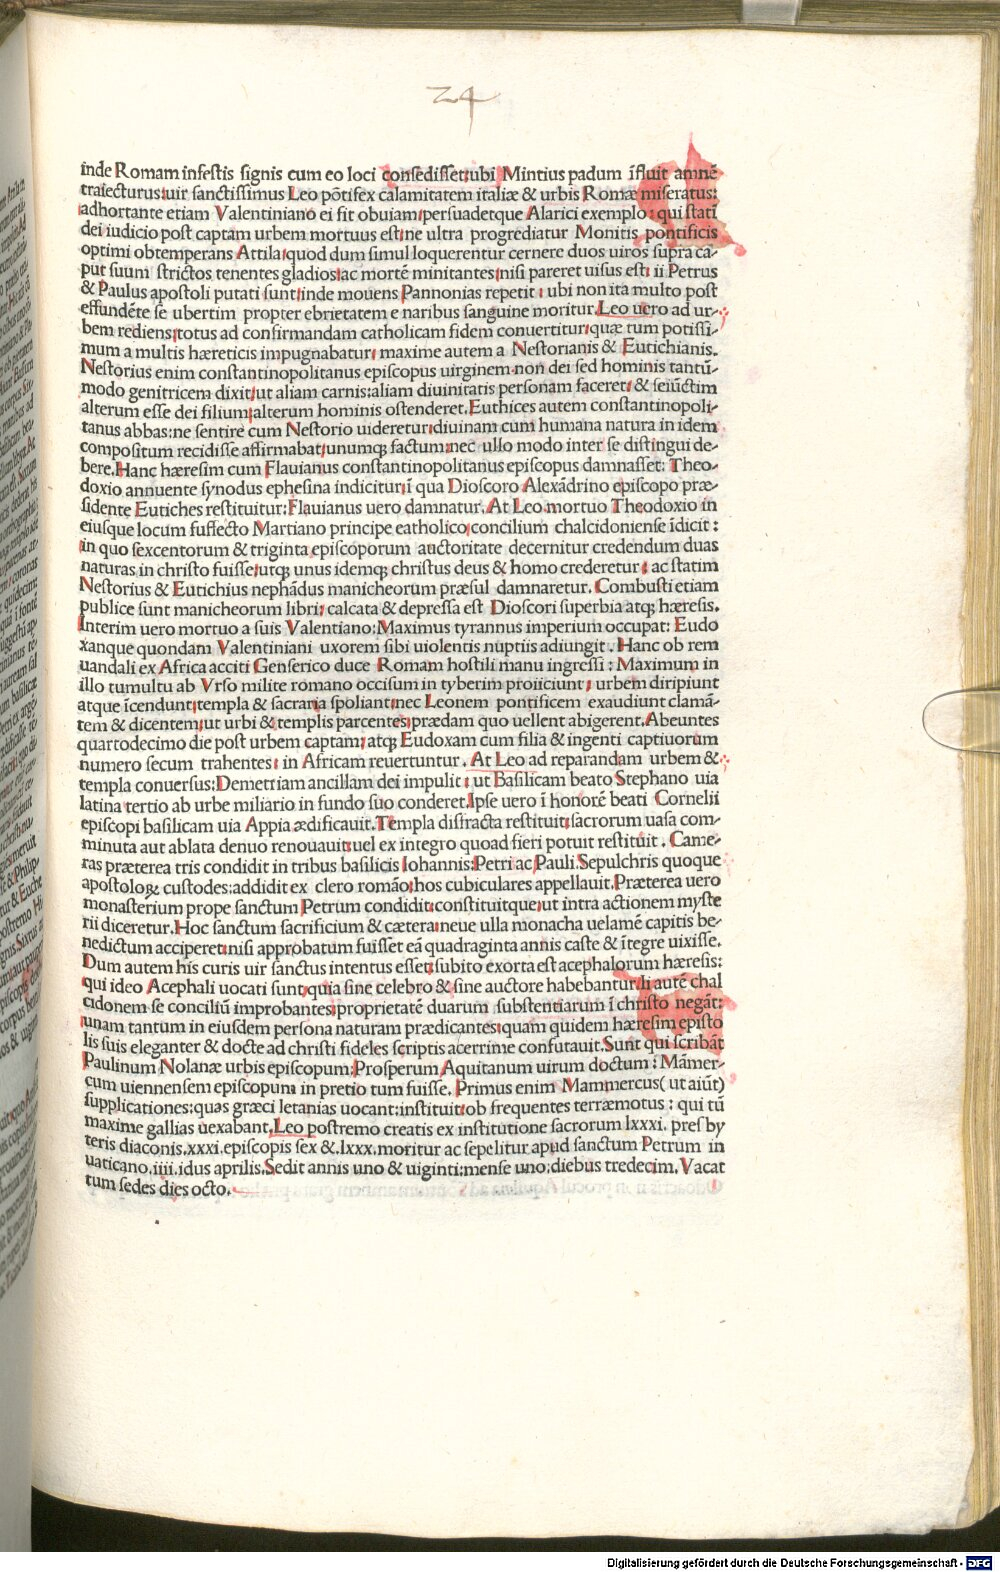 24
inde Romam infestis signis cum eo loci consedisset: ubi Mintius padum īfluit amnē
traiecturus: uir sanctissimus Leo pōtifex calamitatem italiæ & urbis Romæ miseratus:
adhortante etiam Valentiniano ei fit obuiam: persuadetque Alarici exemplo: qui stati
dei iudicio post captam urbem mortuus est: ne ultra progrediatur Monitis pontificis
optimi obtemperans Attila: quod dum simul loquerentur cernere duos uiros supra ca-
put suum strictos tenentes gladios: ac mortē minitantes: nisi pareret uisus est: ii Petrus
& Paulus apostoli putati sunt: inde mouens Pannonias repetit: ubi non ita multo post
effundēte se ubertim propter ebrietatem e naribus sanguine moritur. Leo uero ad ur-
bem rediens: totus ad confirmandam catholicam fidem conuertitur: quæ tum potissi-
mum a multis hæreticis impugnabatur: maxime autem a Nestorianis & Eutichianis.
Nestorius enim constantinopolitanus episcopus uirginem non dei sed hominis tantū-
modo genitricem dixit: ut aliam carnis: aliam diuinitatis personam faceret: & seiūctim
alterum esse dei filium: alterum hominis ostenderet. Euthices autem constantinopoli-
tanus abbas: ne sentire cum Nestorio uideretur: diuinam cum humana natura in idem
compositum recidisse affirmabat: unumq; factum: nec ullo modo inter se distingui de-
bere. Hanc hæresim cum Flauianus constantinopolitanus episcopus damnasset: Theo-
doxio annuente synodus ephesina indicitur: ī qua Dioscoro Alexādrino episcopo præ-
sidente Eutiches restituitur: Flauianus uero damnatur. At Leo mortuo Theodoxio in
eiusque locum suffecto Martiano principe eatholico: concilium chalcidoniense īdicit:
in quo sexcentorum & triginta episcoporum auctoritate decernitur credendum duas
naturas in christo fuisse: utq; unus idemq; christus deus & homo crederetur: ac statim
Nestorius & Eutichius nephādus manicheorum præsul damnaretur. Combusti etiam
publice sunt manicheorum libri: calcata & depressa est Dioscori superbia atq; hæresis.
Interim uero mortuo a suis Valentiano: Maximus tyrannus imperium occupat: Eudo
xanque quondam Valentiniani uxorem sibi uiolentis nuptiis adiungit. Hanc ob rem
uandali ex Africa acciti Genserico duce Romam hostili manu ingressi: Maximum in
illo tumultu ab Vrso milite romano occisum in tyberim proiiciunt: urbem diripiunt
atque īcendunt: templa & sacraria spoliant: nec Leonem pontificem exaudiunt clamā-
tem & dicentem: ut urbi & templis parcentes: prædam quo uellent abigerent. Abeuntes
quartodecimo die post urbem captam: atq; Eudoxam cum filia & ingenti captiuorum
numero secum trahentes: in Africam reuertuntur. At Leo ad reparandam urbem &
templa conuersus: Demetriam ancillam dei impulit: ut Basilicam beato Stephano uia
latina tertio ab urbe miliario in fundo suo conderet. Ipse uero ī honorē beati Cornelii
episcopi basilicam uia Appia ædificauit. Templa disfracta restituit: sacrorum uasa com-
minuta aut ablata denuo renouauit: uel ex integro quoad fieri potuit restituit. Came-
ras præterea tris condidit in tribus basilicis Iohannis: Petri ac Pauli. Sepulchris quoque
apostoloꝝ custodes: addidit ex clero romāo: hos cubiculares appellauit. Præterea uero
monasterium prope sanctum Petrum condidit: constituitque: ut intra actionem myste
rii diceretur. Hoc sanctum sacrificium & cætera: neue ulla monacha uelamē capitis be-
nedictum acciperet: nisi approbatum fuisset eā quadraginta annis caste & ītegre uixisse.
Dum autem his curis uir sanctus intentus esset: subito exorta est acephalorum hæresis:
qui ideo Acephali uocati sunt: quia sine celebro & sine auctore habebantur. Ii autē chal
cidonem se conciliū improbantes: proprietatē duarum substentiarum ī christo negāt:
unam tantum in eiusdem persona naturam prædicantes: quam quidem hæresim episto
lis suis eleganter & docte ad christi fideles scriptis acerrime confutauit. Sunt qui scribāt
Paulinum Nolanæ urbis episcopum: Prosperum Aquitanum uirum doctum: Māmer-
cum uiennensem episcopum in pretio tum fuisse. Primus enim Mammercus( ut aiūt)
supplicationes: quas græci letanias uocant: instituit: ob frequentes terræmotus: qui tū
maxime gallias uexabant. Leo postremo creatis ex institutione sacrorum lxxxi. presby
teris diaconis. xxxi. episcopis sex &. lxxx. moritur ac sepelitur apud sanctum Petrum in
uaticano. iiii. idus aprilis. Sedit annis uno & uiginti: mense uno: diebus tredecim. Vacat
tum sedes dies octo.
Digitalisierung gefördert durch die Deutsche Forschungsgemeinschaft - DFG